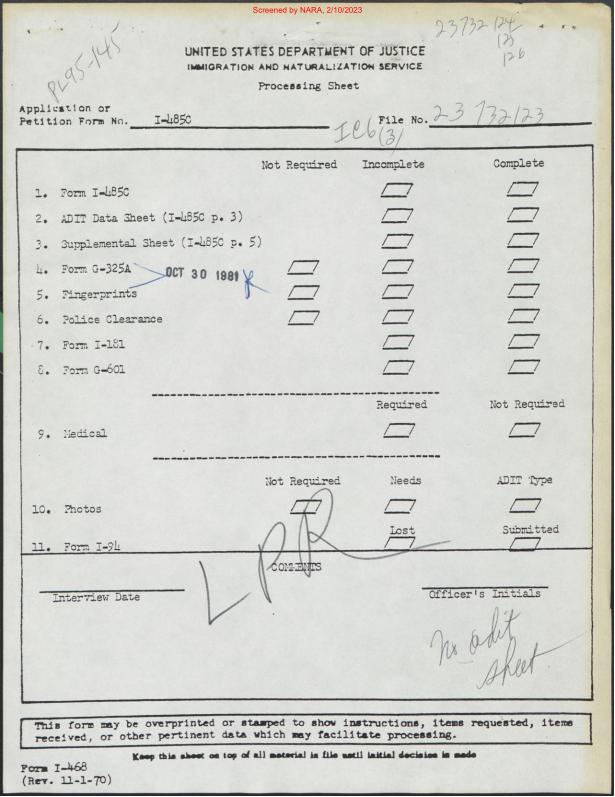 Screened by NARA, 2/10/2023
23732 124
125
126
PL95-145
UNITED STATES DEPARTMENT OF JUSTICE
IMMIGRATION AND NATURALIZATION SERVICE
Processing Sheet
Application or
Petition Form No. I-485C File No. 23 732123
(3)
Not Required Incomplete Complete
1. Form I-485C
2. ADIT Data Sheet (I-485C p. 3)
3. Supplemental Sheet (I-485C p. 5)
4. Form G-325A OCT 30 1981
5. Fingerprints
6. Police Clearance
7. Form I-181
8. Form G-601
Required Not Required
9. Medical
Not Required Needs ADIT Type
10. Photos
Lost Submitted
11. Form I-94
LPR
COMMENTS
Interview Date Officer's Initials
No adit
sheet
This form may be overprinted or stamped to show instructions, items requested, items
received, or other pertinent data which may facilitate processing.
Keep this sheet on top of all material in file until initial decision is made
Form I-468
(Rev. 11-1-70)